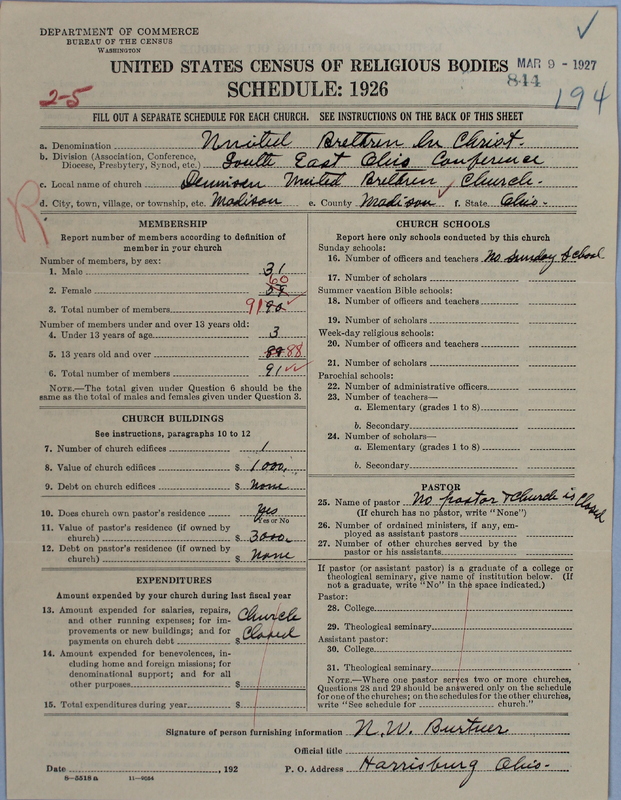 DEPARTMENT OF COMMERCE
BUREAU OF THE CENSUS
WASHINGTON
UNITED STATES CENSUS OF RELIGIOUS BODIES
SCHEDULE: 1926
MAR 9 - 1927
844
194
2-5
FILL OUT A SEPARATE SCHEDULE FOR EACH CHURCH. SEE INSTRUCTIONS ON THE BACK OF THIS SHEET
a. Denomination United Brethren In Christ.
b. Division (Association, Conference,
Diocese, Presbytery, Synod, etc.) South East Ohio Conference
c. Local name of church Dennison United Brethren Church.
d. City, town, village, or township, etc. Madison e. County Madison f. State Ohio.
R
MEMBERSHIP
Report number of members according to definition of
member in your church
Number of members, by sex:
1. Male 31
2. Female 60
3. Total number of members 91 90
Number of members under and over 13 years old:
4. Under 13 years of age 3
5. 13 years old and over 88
6. Total number of members 91
NOTE.—The total given under Question 6 should be
the same as the total of males and females given under Question 3.
CHURCH BUILDINGS
See instructions, paragraphs 10 to 12
7. Number of church edifices 1
8. Value of church edifices $ 1000.
9. Debt on church edifices $ None
10. Does church own pastor's residence Yes
Yes or No
11. Value of pastor's residence (if owned by
church) $ 3000.
12. Debt on pastor's residence (if owned by
church) $ None
EXPENDITURES
Amount expended by your church during last fiscal year
13. Amount expended for salaries, repairs,
and other running expenses; for im-
provements or new buildings; and for
payments on church debt $ Church Closed
14. Amount expended for benevolences, in-
cluding home and foreign missions; for
denominational support; and for all
other purposes $
15. Total expenditures during year $
CHURCH SCHOOLS
Report here only schools conducted by this church
Sunday schools:
16. Number of officers and teachers No Sunday School
17. Number of scholars
Summer vacation Bible schools:
18. Number of officers and teachers
19. Number of scholars
Week-day religious schools:
20. Number of officers and teachers
21. Number of scholars
Parochial schools:
22. Number of administrative officers
23. Number of teachers—
a. Elementary (grades 1 to 8)
b. Secondary
24. Number of scholars—
a. Elementary (grades 1 to 8)
b. Secondary
PASTOR
25. Name of pastor No pastor & Church is Closed
(If church has no pastor, write "None")
26. Number of ordained ministers, if any, em-
ployed as assistant pastors
27. Number of other churches served by the
pastor or his assistants
If pastor (or assistant pastor) is a graduate of a college or
theological seminary, give name of institution below. (If
not a graduate, write "No" in the space indicated.)
Pastor:
28. College
29. Theological seminary
Assistant pastor:
30. College
31. Theological seminary
NOTE.—Where one pastor serves two or more churches,
Questions 28 and 29 should be answered only on the schedule
for one of the churches; on the schedules for the other churches,
write "See schedule for church."
Signature of person furnishing information N. W. Burtner
Official title
Date , 192 P. O. Address Harrisburg Ohio.
8—5518 a 11—9054